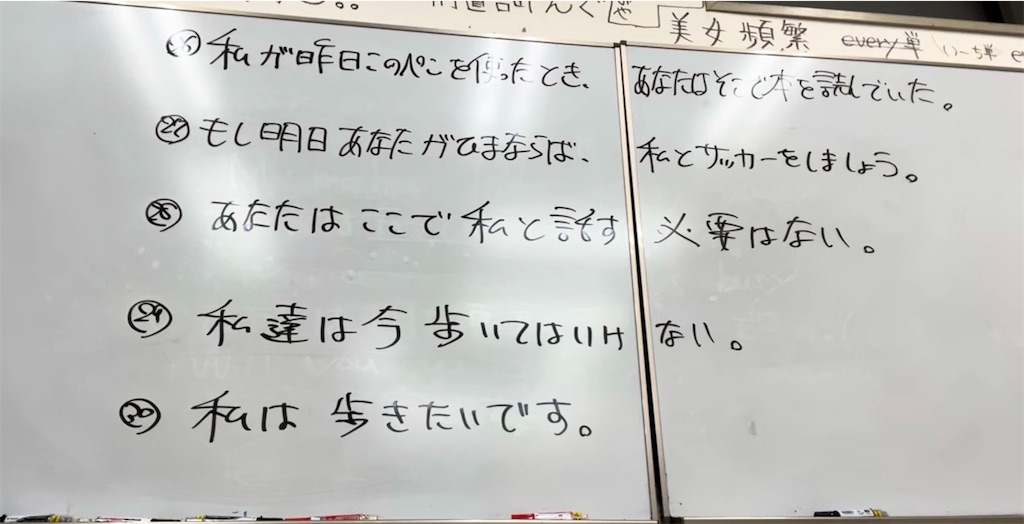 美女頻繁 every単 いーち単
私が昨日このペンを使ったとき、あなたはそこで本を読んでいた。
㉗ もし明日あなたがひまならば、私とサッカーをしましょう。
㉘ あなたはここで私と話す必要はない。
㉙ 私達は今歩いてはいけない。
㉚ 私は歩きたいです。